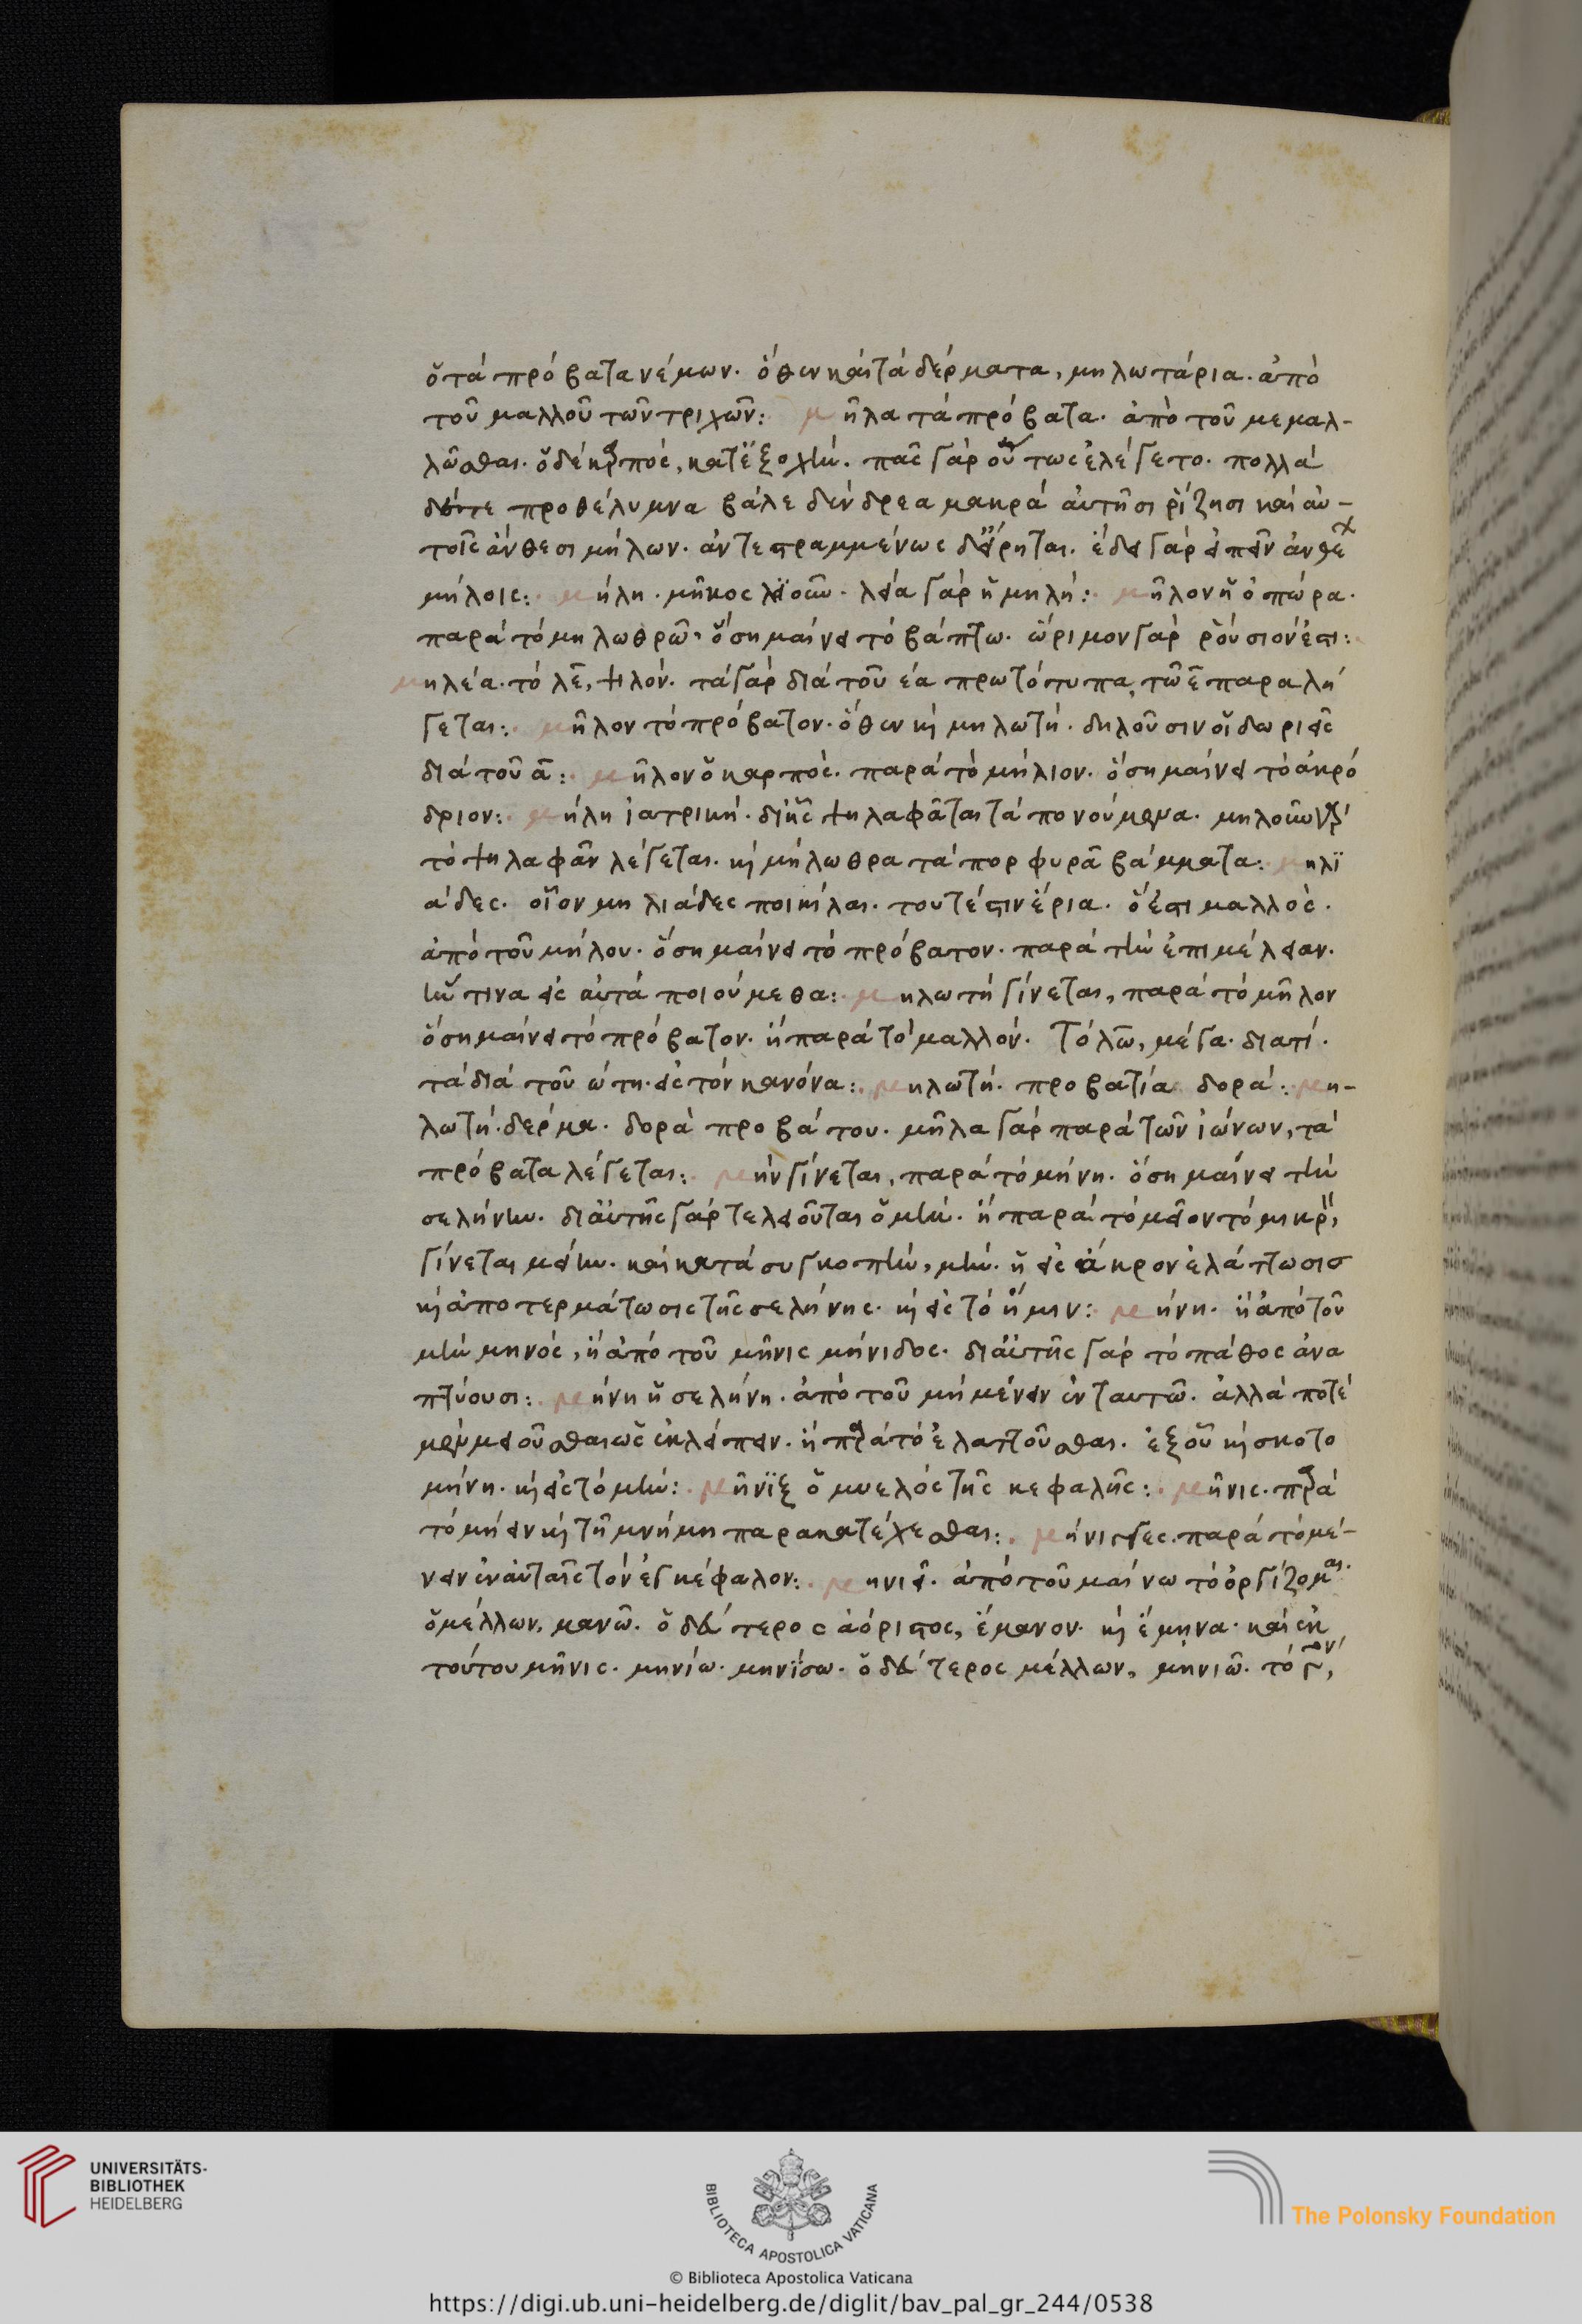 ὁ τὰ πρόβατα νέμων. ὅθεν καὶ τὰ δέρματα, μηλωτάρια. ἀπὸ
τοῦ μαλλοῦ τῶν τριχῶν: μῆλα τὰ πρόβατα. ἀπὸ τοῦ μεμαλ-
λῶσθαι. ὁ δὲ καρπὸς, κατ' ἐξοχὴν. πᾶς γὰρ οὕτως ἐλέγετο. πολλὰ
προθέλυμνα βάλε δένδρεα μακρὰ αὐτῆσι ρίζησι καὶ αὐ-
τοῖς ἄνθεσι μήλων. ἀντεστραμμένως δὲ εἴρηται. ἔδει γὰρ εἰπεῖν
μήλοις: μήλη. μῆκος γὰρ ἡ μηλή: μῆλον ἡ ὀπώρα.
παρὰ τὸ μηλωθρῶ, ὃ σημαίνει τὸ βάπτω. ὥριμον γὰρ ῥούσιόν ἐστι:
μηλέα. τὸ λε, ψιλόν. τὰ γὰρ διὰ τοῦ έα πρωτότυπα, τῶ ε παραλή
γεται: μῆλον τὸ πρόβατον. ὅθεν καὶ μηλωτή. δηλοῦσιν οἱ δωριεῖς
διὰ τοῦ α: μῆλον ὁ καρπός. παρὰ τὸ μήλιον. ὃ σημαίνει τὸ ἀκρό
δριον: μήλη ἰατρική. δι' ἧς ψηλαφᾶται τὰ πονούμενα.
τὸ ψηλαφᾶν λέγεται. καὶ μήλωθρα τὰ πορφυρᾶ βάμματα: μηλι
άδες. οἷον μηλιάδες ποικίλαι. τουτέστιν ἔρια. ὅ ἐστι μαλλός.
ἀπὸ τοῦ μήλου. ὃ σημαίνει τὸ πρόβατον. παρὰ τὴν ἐπιμέλειαν.
ἥν τινα εἰς αὐτὰ ποιούμεθα: μηλωτὴ γίνεται, παρὰ τὸ μῆλον
ὃ σημαίνει τὸ πρόβατον. ἢ παρὰ τὸ μαλλόν. Τὸ λω, μέγα. διατί.
τὰ διὰ τοῦ ώτη. εἰς τὸν κανόνα: μηλωτή. προβατία δορά: μη-
λωτή. δέρμα. δορὰ προβάτου. μῆλα γὰρ παρὰ τῶν ἰώνων, τὰ
πρόβατα λέγεται: μὴν γίνεται, παρὰ τὸ μήνη. ὃ σημαίνει τὴν
σελήνην. δι' αὐτῆς γὰρ τελειοῦται ὁ μήν. ἢ παρὰ τὸ μεῖον τὸ μικρὸν,
γίνεται μείην. καὶ κατὰ συγκοπὴν, μήν. ἡ εἰς ἄκρον ἐλάττωσις
καὶ ἀποτερμάτωσις τῆς σελήνης. καὶ εἰς τὸ ἥμιν: μήνη. ἢ ἀπὸ τοῦ
μὴν μηνός, ἢ ἀπὸ τοῦ μῆνις μήνιδος. δι' αὐτῆς γὰρ τὸ πάθος ἀνα
πτύουσι: μήνη ἡ σελήνη. ἀπὸ τοῦ μὴ μένειν ἐν ταυτῶ. ἀλλὰ ποτὲ
μὲν μειοῦσθαι ὡς ἐκλείπειν. ἢ παρὰ τὸ ἐλαττοῦσθαι. ἐξ οὗ καὶ σκοτο
μήνη. καὶ εἰς τὸ μήν: μῆνιξ ὁ μυελὸς τῆς κεφαλῆς: μῆνις. παρὰ
τὸ μὴ εἶν καὶ τῆ μνήμη παρακατέχεσθαι: μήνιγγες. παρὰ τὸ μέ-
νειν ἐν αὐταῖς τὸν ἐγκέφαλον: μηνιεῖ. ἀπὸ τοῦ μαίνω τὸ ὀργίζομαι.
ὁ μέλλων, μανῶ. ὁ δεύτερος ἀόριστος, ἔμανον. καὶ ἔμηνα. καὶ ἐκ
τούτου μῆνις. μηνίω. μηνίσω. ὁ δεύτερος μέλλων, μηνιῶ. τὸ
UNIVERSITÄTS-
BIBLIOTHEK
HEIDELBERG
BIBLIOTECA APOSTOLICA VATICANA
The Polonsky Foundation
© Biblioteca Apostolica Vaticana
https://digi.ub.uni-heidelberg.de/diglit/bav_pal_gr_244/0538